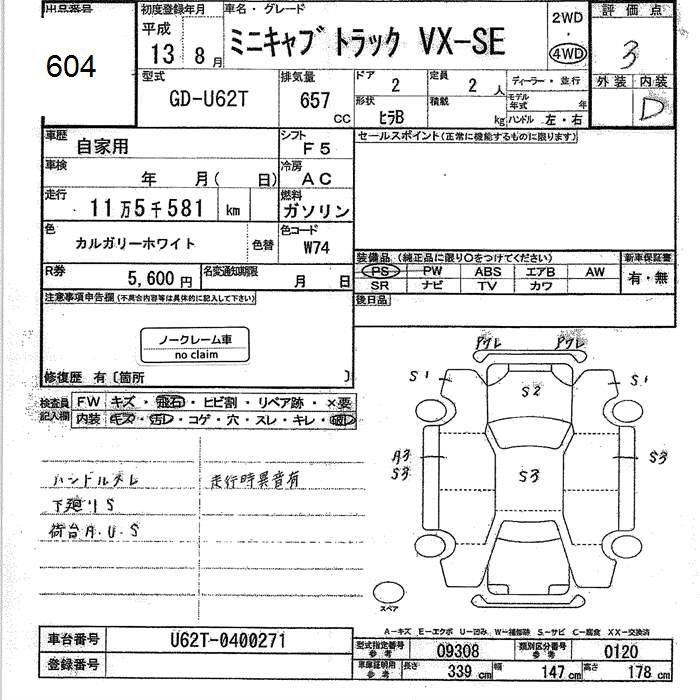 出品番号 初度登録年月 車名・グレード 2WD 評価点
604 平成 13 8月 ミニキャブトラック VX-SE ・ 4WD 3
型式 排気量 ドア 定員 ディーラー・並行 外装 内装
GD-U62T 657 cc 2 2人 モデル年式 年 D
形状 積載
ヒラB kg ハンドル 左・右
車歴 自家用 シフト F5 セールスポイント(正常に機能するものに限ります)
車検 年 月( 日) 冷房 AC
走行 11万5千581 km 燃料 ガソリン
色 カルガリーホワイト 色替 色コード W74
装備品(純正品に限り○をつけてください) 新車保証書
R券 5,600円 名変通知期限 月 日 PS PW ABS エアB AW 有・無
SR ナビ TV カワ
注意事項申告欄(不具合内容等は具体的に記入して下さい) 後日品
ノークレーム車
no claim
修復歴 有〔箇所 〕
検査員記入欄 FW キズ・飛石・ヒビ割・リペア跡・×要
内装 キズ・汚レ・コゲ・穴・スレ・キレ・破レ
アレ アレ
S1 S2 S1
A3 S3 S3 S3
ハンドルスレ 走行時異音有
下廻リS
荷台A.U.S
スペア
A-キズ E-エクボ U-凹み W-補修跡 S-サビ C-腐食 XX-交換済
車台番号 U62T-0400271 型式指定番号参考 09308 類別区分番号参考 0120
登録番号 車庫証明用参考 長さ 339cm 幅 147cm 高さ 178cm